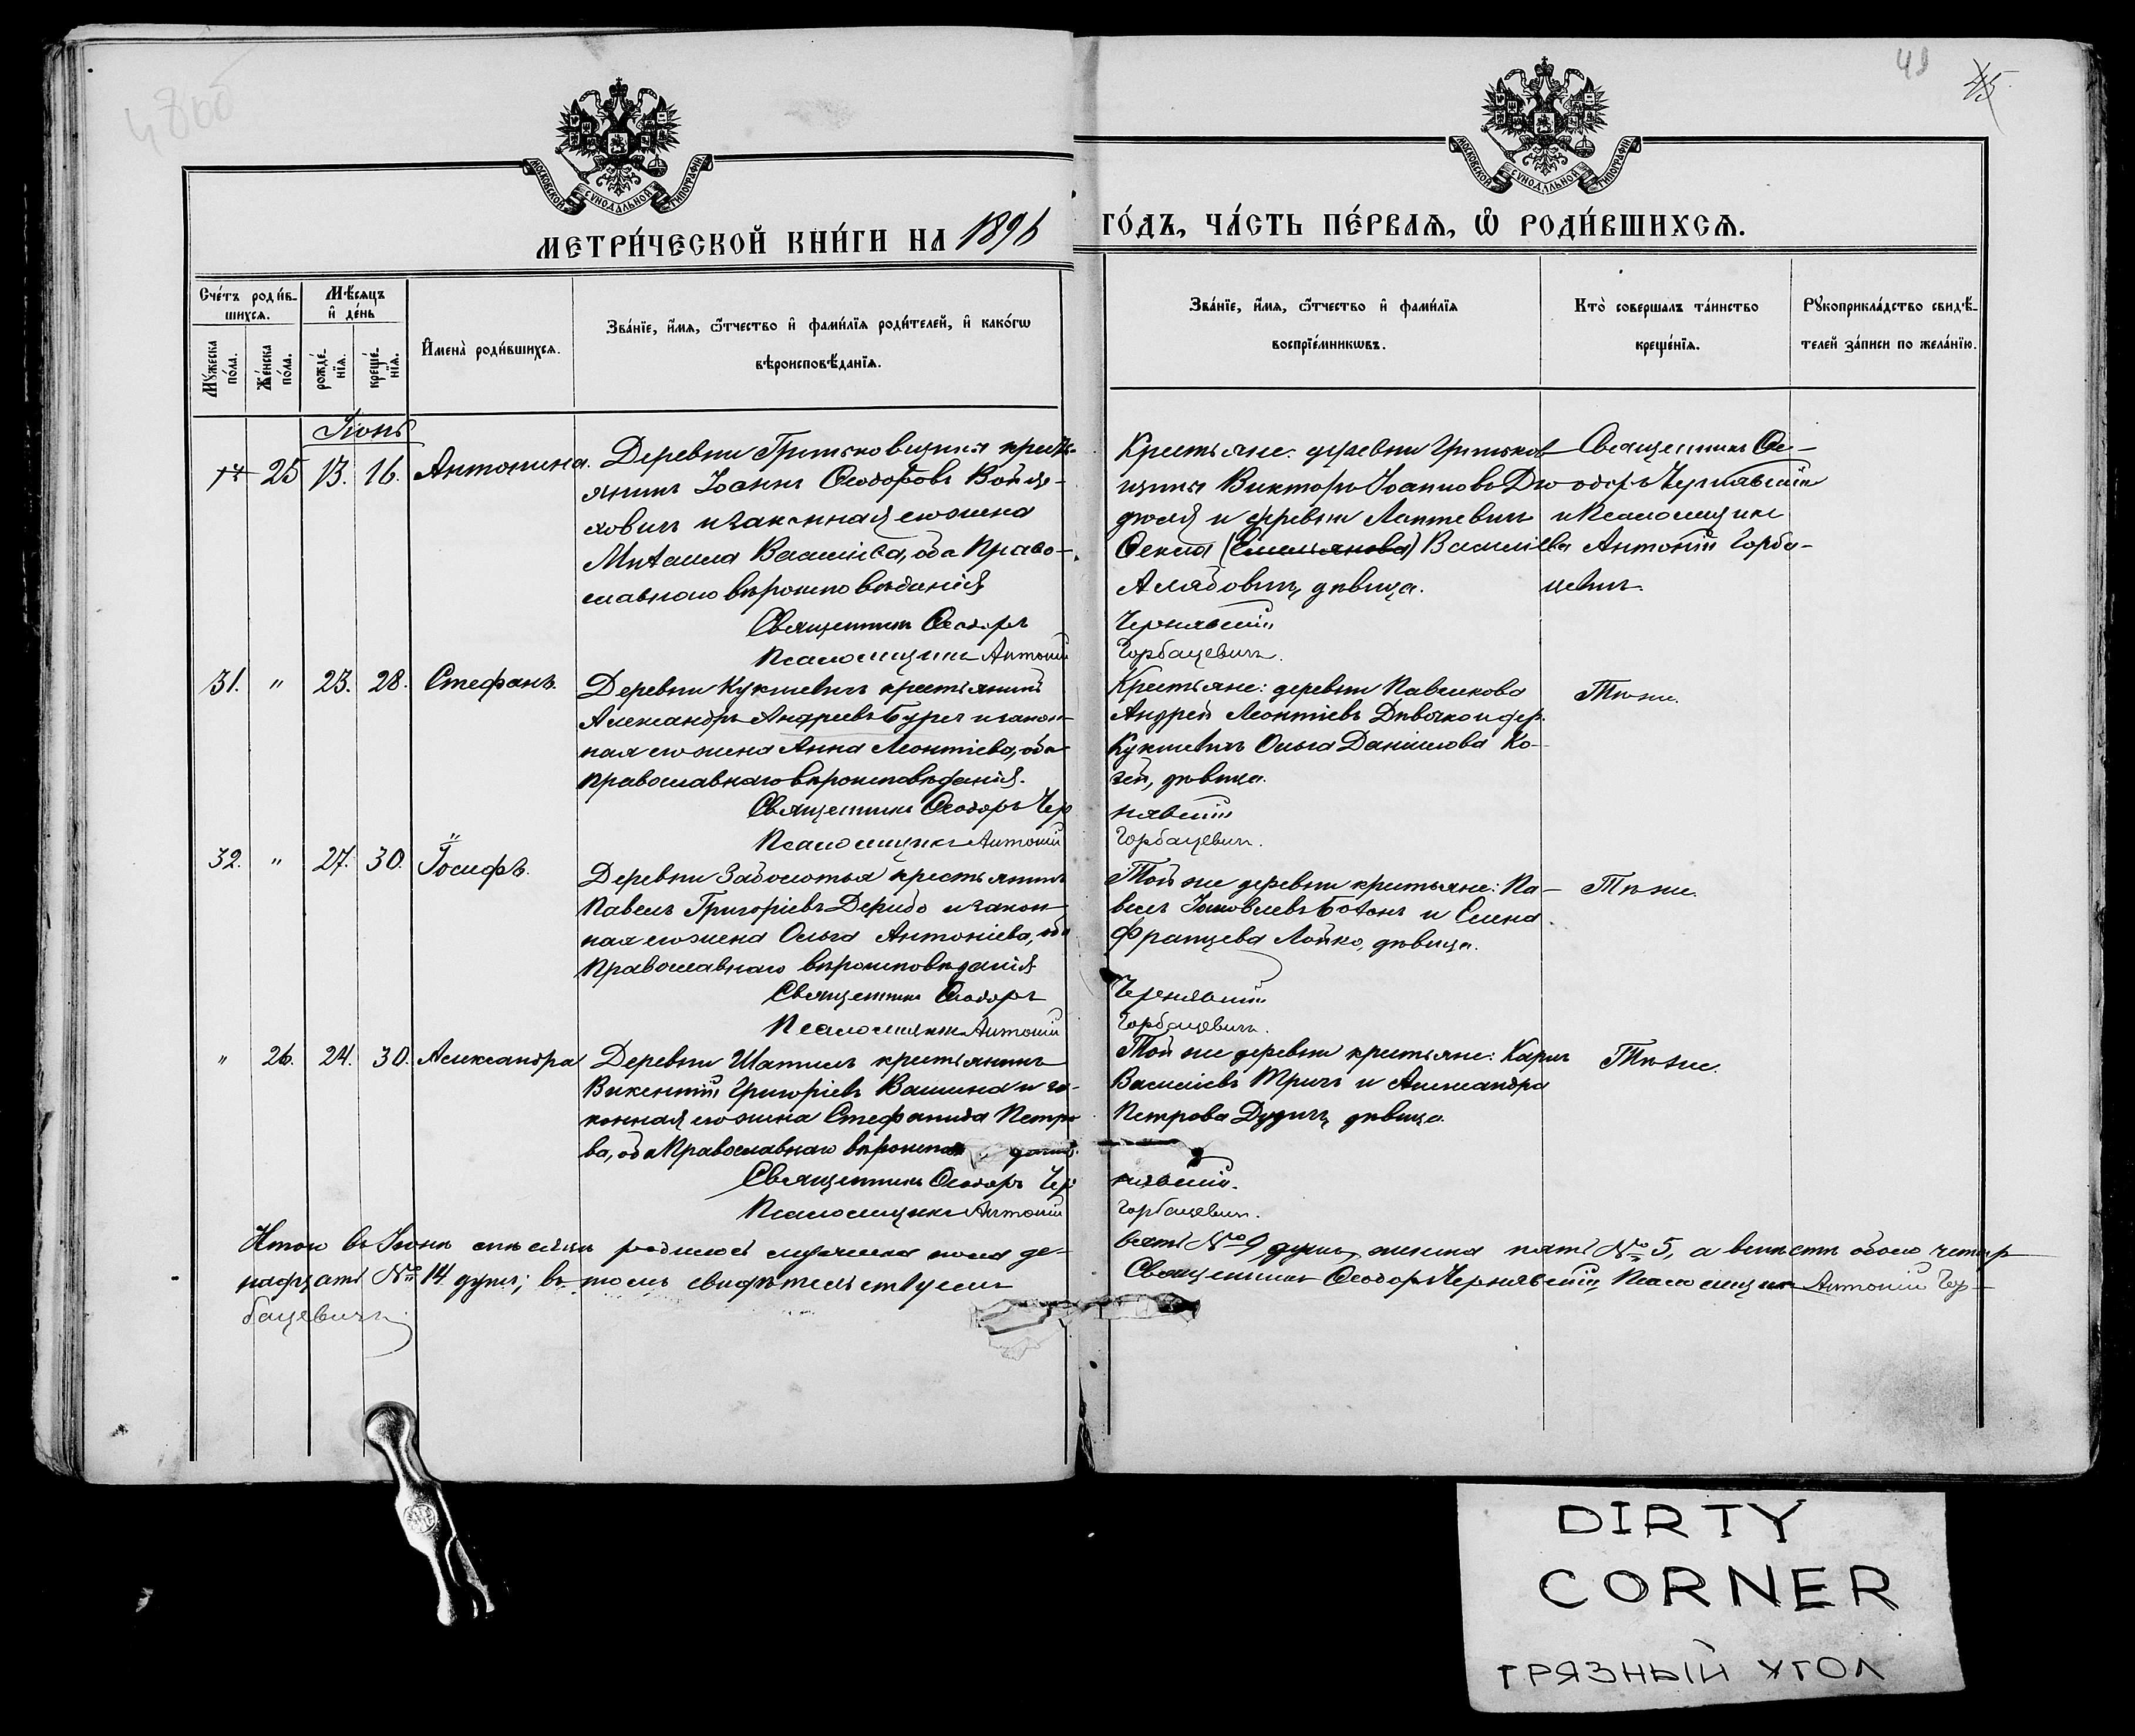 48об
49
45
МОСКОВСКОЙ СѴНОДАЛЬНОЙ ТИПОГРАФІИ
МОСКОВСКОЙ СѴНОДАЛЬНОЙ ТИПОГРАФІИ
МЕТРИ́ЧЕСКОЙ КНИ́ГИ НА 1896 ГО́ДЪ, ЧА́СТЬ ПЕ́РВАЯ, Ѡ РОДИ́ВШИХСЯ.
Сче́тъ роди́в-
шихся.
Мѣ́сяцъ
и де́нь
Мꙋ́жеска
по́ла.
Же́нска
по́ла.
рожде́-
нїя.
креще́-
нїя.
Имена̀ роди́вшихся.
Зва́нїе, и́мя, ѻ́тчество и фами́лїя роди́телей, и како́гѡ
вѣроисповѣ́данїя.
Зва́нїе, и́мя, ѻ́тчество и фами́лїя
воспрїе́мникѡвъ.
Кто̀ соверша́лъ та́инство
креще́нїя.
Рꙋкоприкла́дство свидѣ́-
телей за́писи по жела́нїю.
Іюнь
25 13. 16. Антонина.
Деревни Гриньковщина кресть-
янинъ Іоаннъ Ѳеодоровъ Войце-
ховичъ и законная его жена
Васильева, оба Право-
славнаго вѣроисповѣданія
Священникъ Ѳеодоръ Чернявскій
Псаломщикъ Антоній Горбацевичъ.
Крестьяне: деревни Гриньков-
щины Викторъ Іоанновъ Дю-
дюля и деревни Лаптевичъ
(Емельянова) Васильева
Алядовичъ, дѣвица.
Священникъ Ѳе-
одоръ Чернявскій
и Псаломщикъ
Антоній Горба-
цевичъ.
31. " 23. 28. Стефанъ.
Деревни Кукшевичъ крестьянинъ
Александръ Андреевъ Буречъ и закон-
ная его жена Анна Леонтіева, оба
Православнаго вѣроисповѣданія.
Священникъ Ѳеодоръ Чернявскій
Псаломщикъ Антоній Горбацевичъ.
Крестьяне: деревни Павликово
Андрей Леонтіевъ Дѣвочко и дер.
Кукшевичъ Ольга Даніилова Ко-
чей, дѣвица.
Тѣ же.
32. " 27. 30. Іосифъ.
Деревни Заболотья крестьянинъ
Павелъ Григоріевъ Дерибо и закон-
ная его жена Ольга Антоніева, оба
Православнаго вѣроисповѣданія
Священникъ Ѳеодоръ Чернявскій
Псаломщикъ Антоній Горбацевичъ.
Той же деревни крестьяне: Па-
велъ Яковлевъ и Елена
Францева Лойко, дѣвица.
Тѣ же.
" 26. 24. 30. Александра
Деревни Шатилъ крестьянинъ
Викентій Григоріевъ Вашина и за-
конная его жена Стефанида Петро-
ва, оба Православнаго
Священникъ Ѳеодоръ Чернявскій.
Псаломщикъ Антоній Горбацевичъ.
Той же деревни крестьяне: Карлъ
Василіевъ Тричъ и Александра
Петрова Дудичъ, дѣвица.
Тѣ же.
Итого въ Іюнѣ мѣсяцѣ родилось мужеска пола де-вять № 9 душъ, женска пять № 5, а вмѣстѣ обоего четыр
надцать № 14 душъ; въ томъ свидѣтельствуемъ Священникъ Ѳеодоръ Чернявскій, Псаломщикъ Антоній Гор-
бацевичъ
DIRTY
CORNER
ГРЯЗНЫЙ УГОЛ